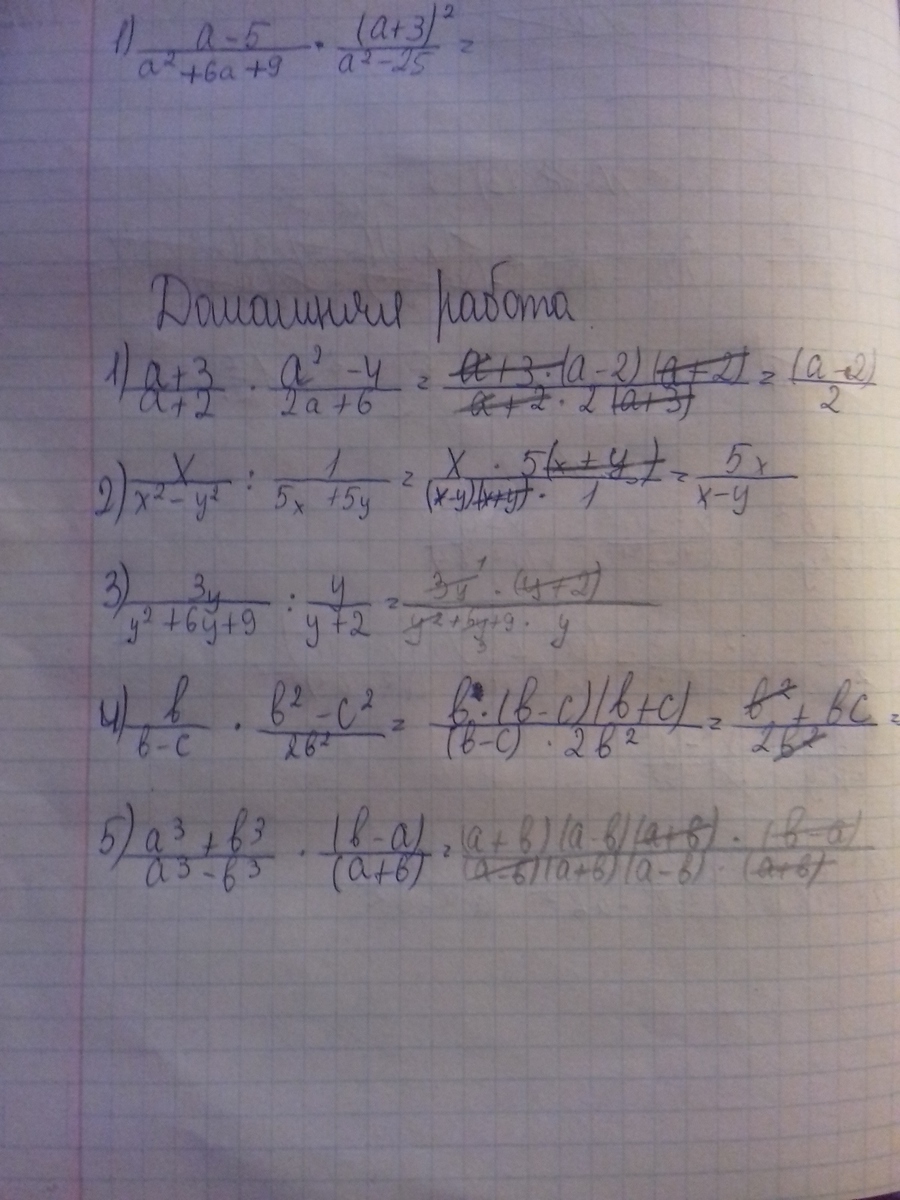 1) (a-5)/(a²+6a+9) · (a+3)²/(a²-25) =
Домашняя работа
1) (a+3)/(a+2) · (a²-4)/(2a+6) = (a+3·(a-2)(a+2))/(a+2·2(a+3)) = (a-2)/2
2) x/(x²-y²) : 1/(5x+5y) = (x·5(x+y))/((x-y)(x+y)·1) = 5x/(x-y)
3) 3y/(y²+6y+9) : y/(y+2) = (3y¹·(y+2))/(y²+6y+9·y)
4) в/(в-c) · (в²-c²)/(2в²) = (в·(в-c)(в+c))/((в-c)·2в²) = (в²+вc)/(2в²) =
5) (a³+в³)/(a³-в³) · (в-a)/(a+в) = ((a+в)(a-в)(a+в)·(в-a))/((a-в)(a+в)(a-в)·(a+в))